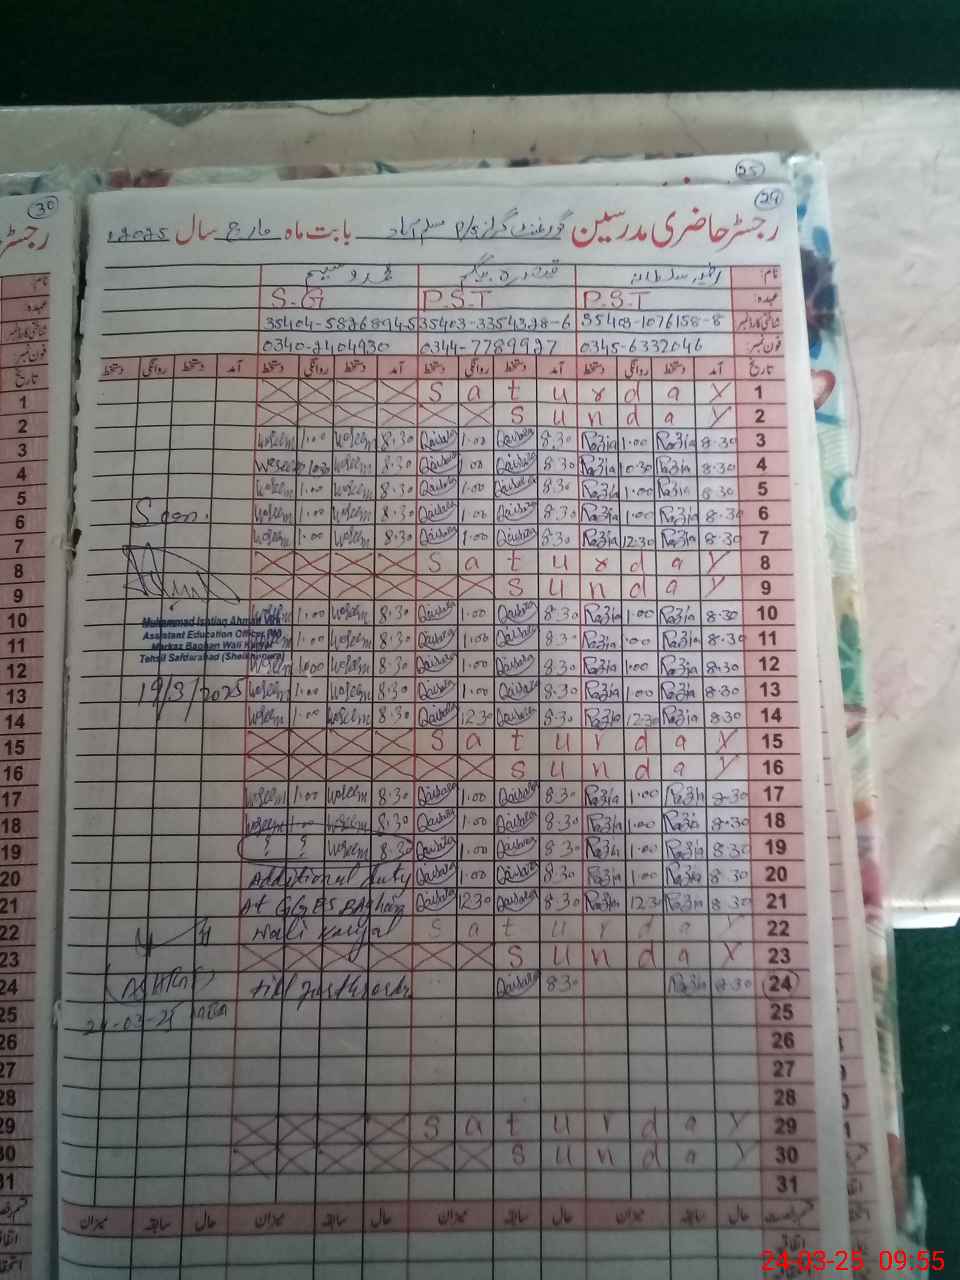 30
25
29
رجسٹر حاضری مدرسین گورنمنٹ گرلز P/S مسلم آباد بابت ماہ مارچ سال 2025ء
نام:
عہدہ: P.S.T P.S.T S.G
شناختی کارڈ نمبر 35403-1076158-8 35403-3354328-6 35404-5826894-5
فون نمبر: 0345-6332046 0344-7789927 0340-2404930
تاریخ آمد دستخط روانگی دستخط آمد دستخط روانگی دستخط آمد دستخط روانگی دستخط آمد دستخط روانگی دستخط
Saturday 1
Sunday 2
Waseem 1.00 Waseem 8.30 Qaisara 1.00 Qaisara 8.30 Razia 1.00 Razia 8.30 3
Waseem 10:30 Waseem 8.30 Qaisara 1.00 Qaisara 8.30 Razia 10:30 Razia 8.30 4
Waseem 1.00 Waseem 8.30 Qaisara 1.00 Qaisara 8.30 Razia 1.00 Razia 8.30 5
Seen. Waseem 1.00 Waseem 8.30 Qaisara 1.00 Qaisara 8.30 Razia 1.00 Razia 8.30 6
Waseem 1.00 Waseem 8.30 Qaisara 1.00 Qaisara 8.30 Razia 12:30 Razia 8.30 7
Saturday 8
Sunday 9
Waseem 1.00 Waseem 8.30 Qaisara 1.00 Qaisara 8.30 Razia 1.00 Razia 8.30 10
Muhammad Ishtiaq Ahmad Virk
Assistant Education Officer
Waseem 1.00 Waseem 8.30 Qaisara 1.00 Qaisara 8.30 Razia 1.00 Razia 8.30 11
Markaz Baghan Wali Karyal
Tehsil Safdarabad (Sheikhupura)
Waseem 1.00 Waseem 8.30 Qaisara 1.00 Qaisara 8.30 Razia 1.00 Razia 8.30 12
19/3/2025 Waseem 1.00 Waseem 8.30 Qaisara 1.00 Qaisara 8.30 Razia 1.00 Razia 8.30 13
Waseem 1.00 Waseem 8.30 Qaisara 12:30 Qaisara 8.30 Razia 12:30 Razia 8.30 14
Saturday 15
Sunday 16
Waseem 1.00 Waseem 8.30 Qaisara 1.00 Qaisara 8.30 Razia 1.00 Razia 8.30 17
Waseem 1.00 Waseem 8.30 Qaisara 1.00 Qaisara 8.30 Razia 1.00 Razia 8.30 18
Waseem 8.30 Qaisara 1.00 Qaisara 8.30 Razia 1.00 Razia 8.30 19
Additional duty Qaisara 1.00 Qaisara 8.30 Razia 1.00 Razia 8.30 20
At GGES Baghan Qaisara 12:30 Qaisara 8.30 Razia 12:30 Razia 8.30 21
Wali Karyal Saturday 22
Sunday 23
till further Qaisara 8.30 Razia 8.30 24
24-03-25 25
26
27
28
Saturday 29
Sunday 30
31
میزان سابقہ حال میزان سابقہ حال میزان سابقہ حال میزان سابقہ حال
اتفاقیہ
24-03-25 09:55